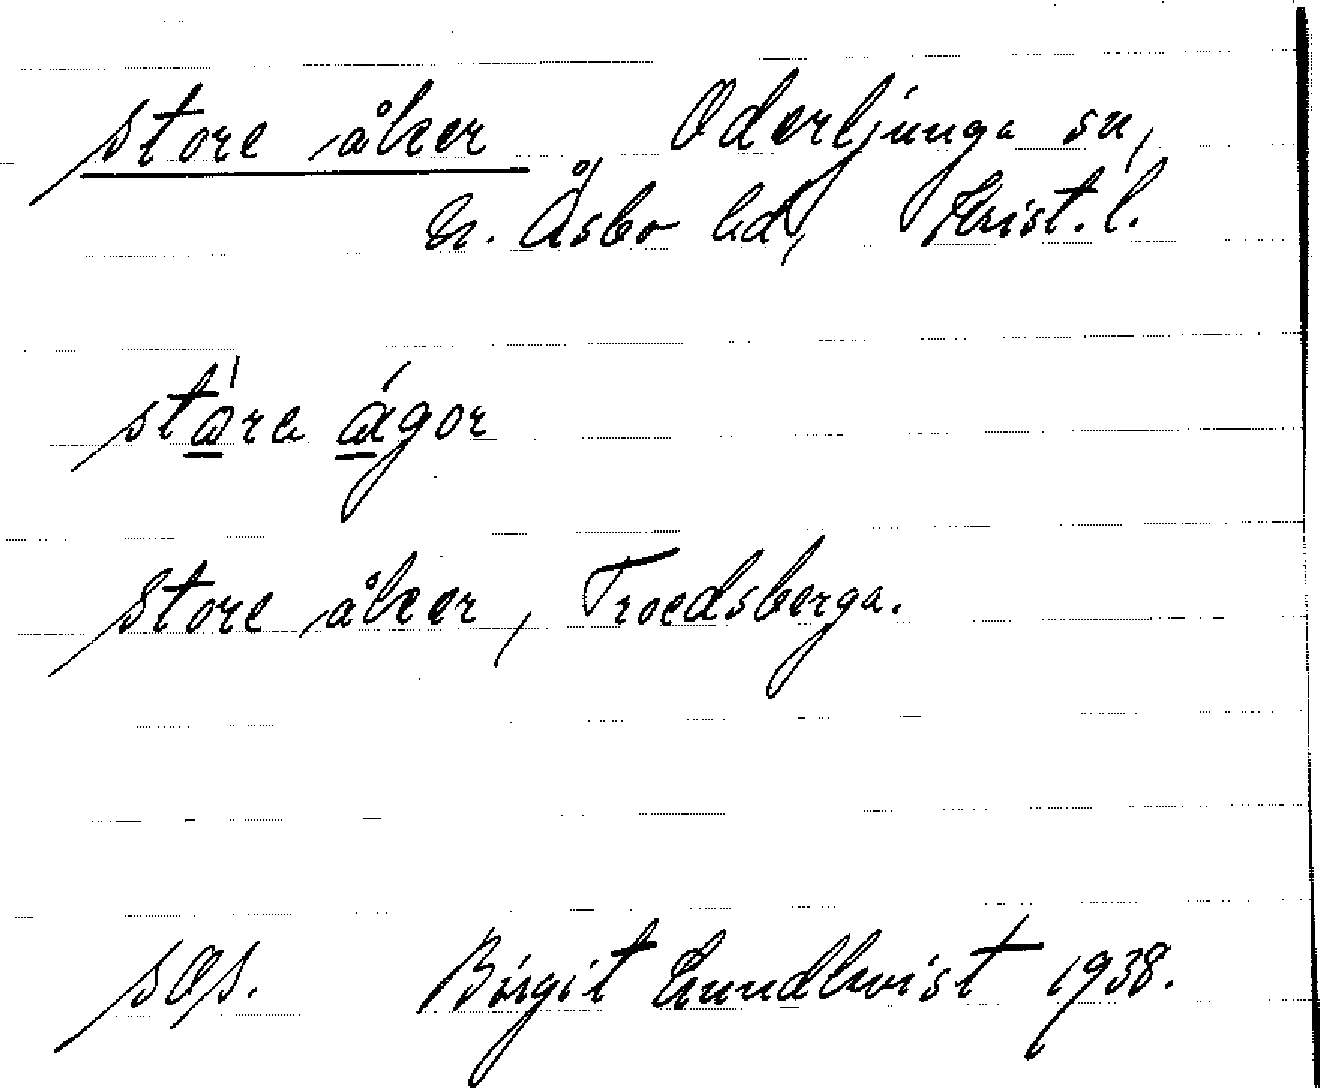 store åker Oderljunga sn,
N. Åsbo hd, Krist. l.
stara ågor
Store åker, Troedsberga.
Birgit Lundkvist 1938.